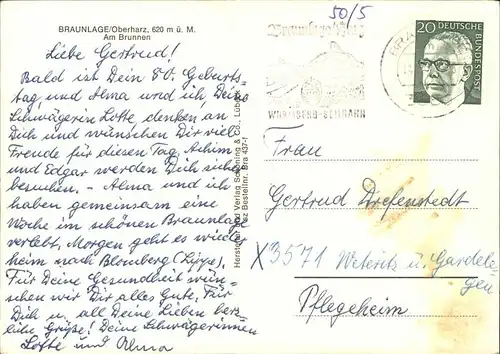 BRAUNLAGE/Oberharz, 620 m ü. M.
Am Brunnen
Liebe Gertrud!
Bald ist Dein 80. Geburts-
tag, und Alma und ich, Deine
Schwägerin Lotte denken an
Dich und wünschen Dir viel
Freude für diesen Tag. Achim
und Edgar werden Dich sicher
besuchen. - Alma und ich
haben gemeinsam eine
Woche im schönen Braunlage
verlebt. Morgen geht es wieder
heim nach Blomberg (Lippe).
Für Deine Gesundheit wün-
schen wir Dir alles Gute. Für
Dich u. all Deine Lieben herz-
liche Grüße! Deine Schwägerinnen
Lotte und Alma
Hersteller und Verlag Schöning & Co., Lübeck
Bestellnr. Bra 437
50/5
Braunlage/Harz
WURMBERG-SEILBAHN
20
DEUTSCHE
BUNDESPOST
Frau
Gertrud Drefenstedt
X3571 Weteritz ü. Gardele-
gen
Pflegeheim